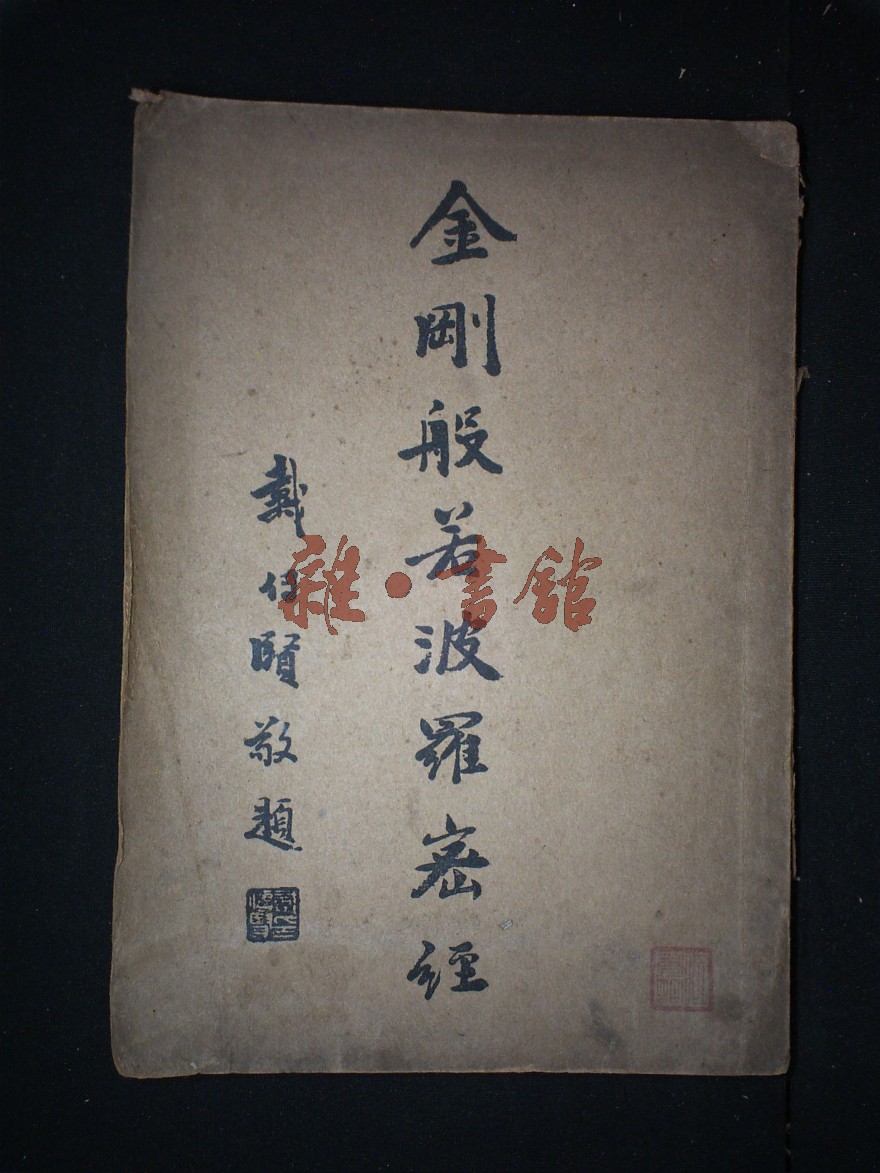 金剛般若波羅密經
戴傳賢敬題
雜·書館